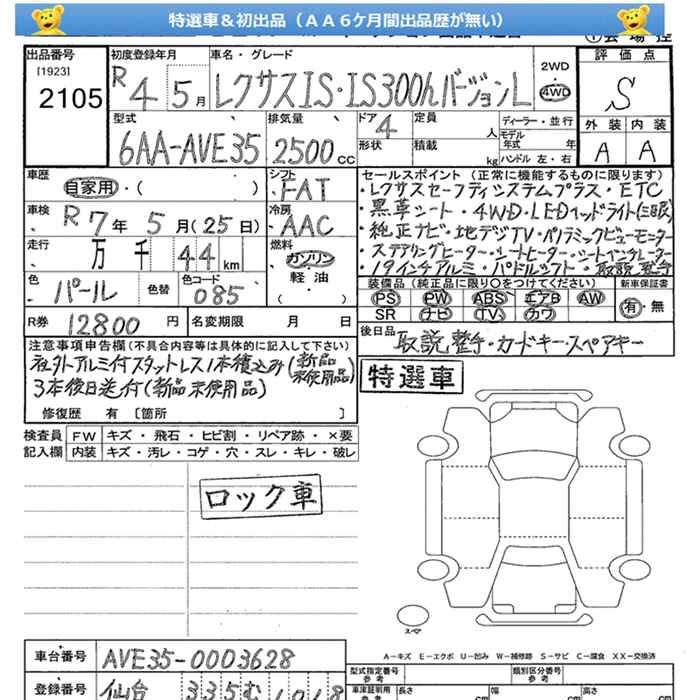 特選車＆初出品（ＡＡ６ケ月間出品歴が無い）
出品番号
[1923]
2105
初度登録年月
R4 5月
車名・グレード
レクサスIS・IS300hバージョンL
2WD
・
4WD
評価点
S
外装 内装
A A
型式
6AA-AVE35
排気量
2500cc
ドア 4
形状
定員 人
積載 kg
ディーラー・並行
モデル年式 年
ハンドル 左・右
車歴
自家用・( )
シフト
FAT
車検
R7年5月(25日)
冷房
AAC
走行
万 千 44 km
燃料
ガソリン
・
軽油
( )
色
パール
色替
色コード
085
R券 12800円
名変期限 月 日
セールスポイント（正常に機能するものに限ります）
・レクサスセーフティシステムプラス・ETC
・黒革シート・4WD・LEDヘッドライト(三眼)
・純正ナビ・地デジTV・パノラミックビューモニター
・ステアリングヒーター・シートヒーター・シートベンチレーター
・19インチアルミ・パドルシフト・取説整手
装備品（純正品に限り○をつけてください）
PS PW ABS エアB AW
SR ナビ TV カワ
新車保証書
有・無
後日品
取説整手・カードキー・スペアキー
注意事項申告欄(不具合内容等は具体的に記入して下さい)
社外アルミ付スタットレス1本積込み(新品未使用品)
3本後日送付(新品未使用品)
修復歴 有 [箇所 ]
特選車
検査員記入欄
FW キズ・飛石・ヒビ割・リペア跡・×要
内装 キズ・汚レ・コゲ・穴・スレ・キレ・破レ
ロック車
スペア
A－キズ E－エクボ U－凹み W－補修跡 S－サビ C－腐食 XX－交換済
車台番号 AVE35-0003628
登録番号 仙台 335む
型式指定番号
参考
類別区分番号
参考
車庫証明用
参考
長さ cm
幅 cm
高さ cm